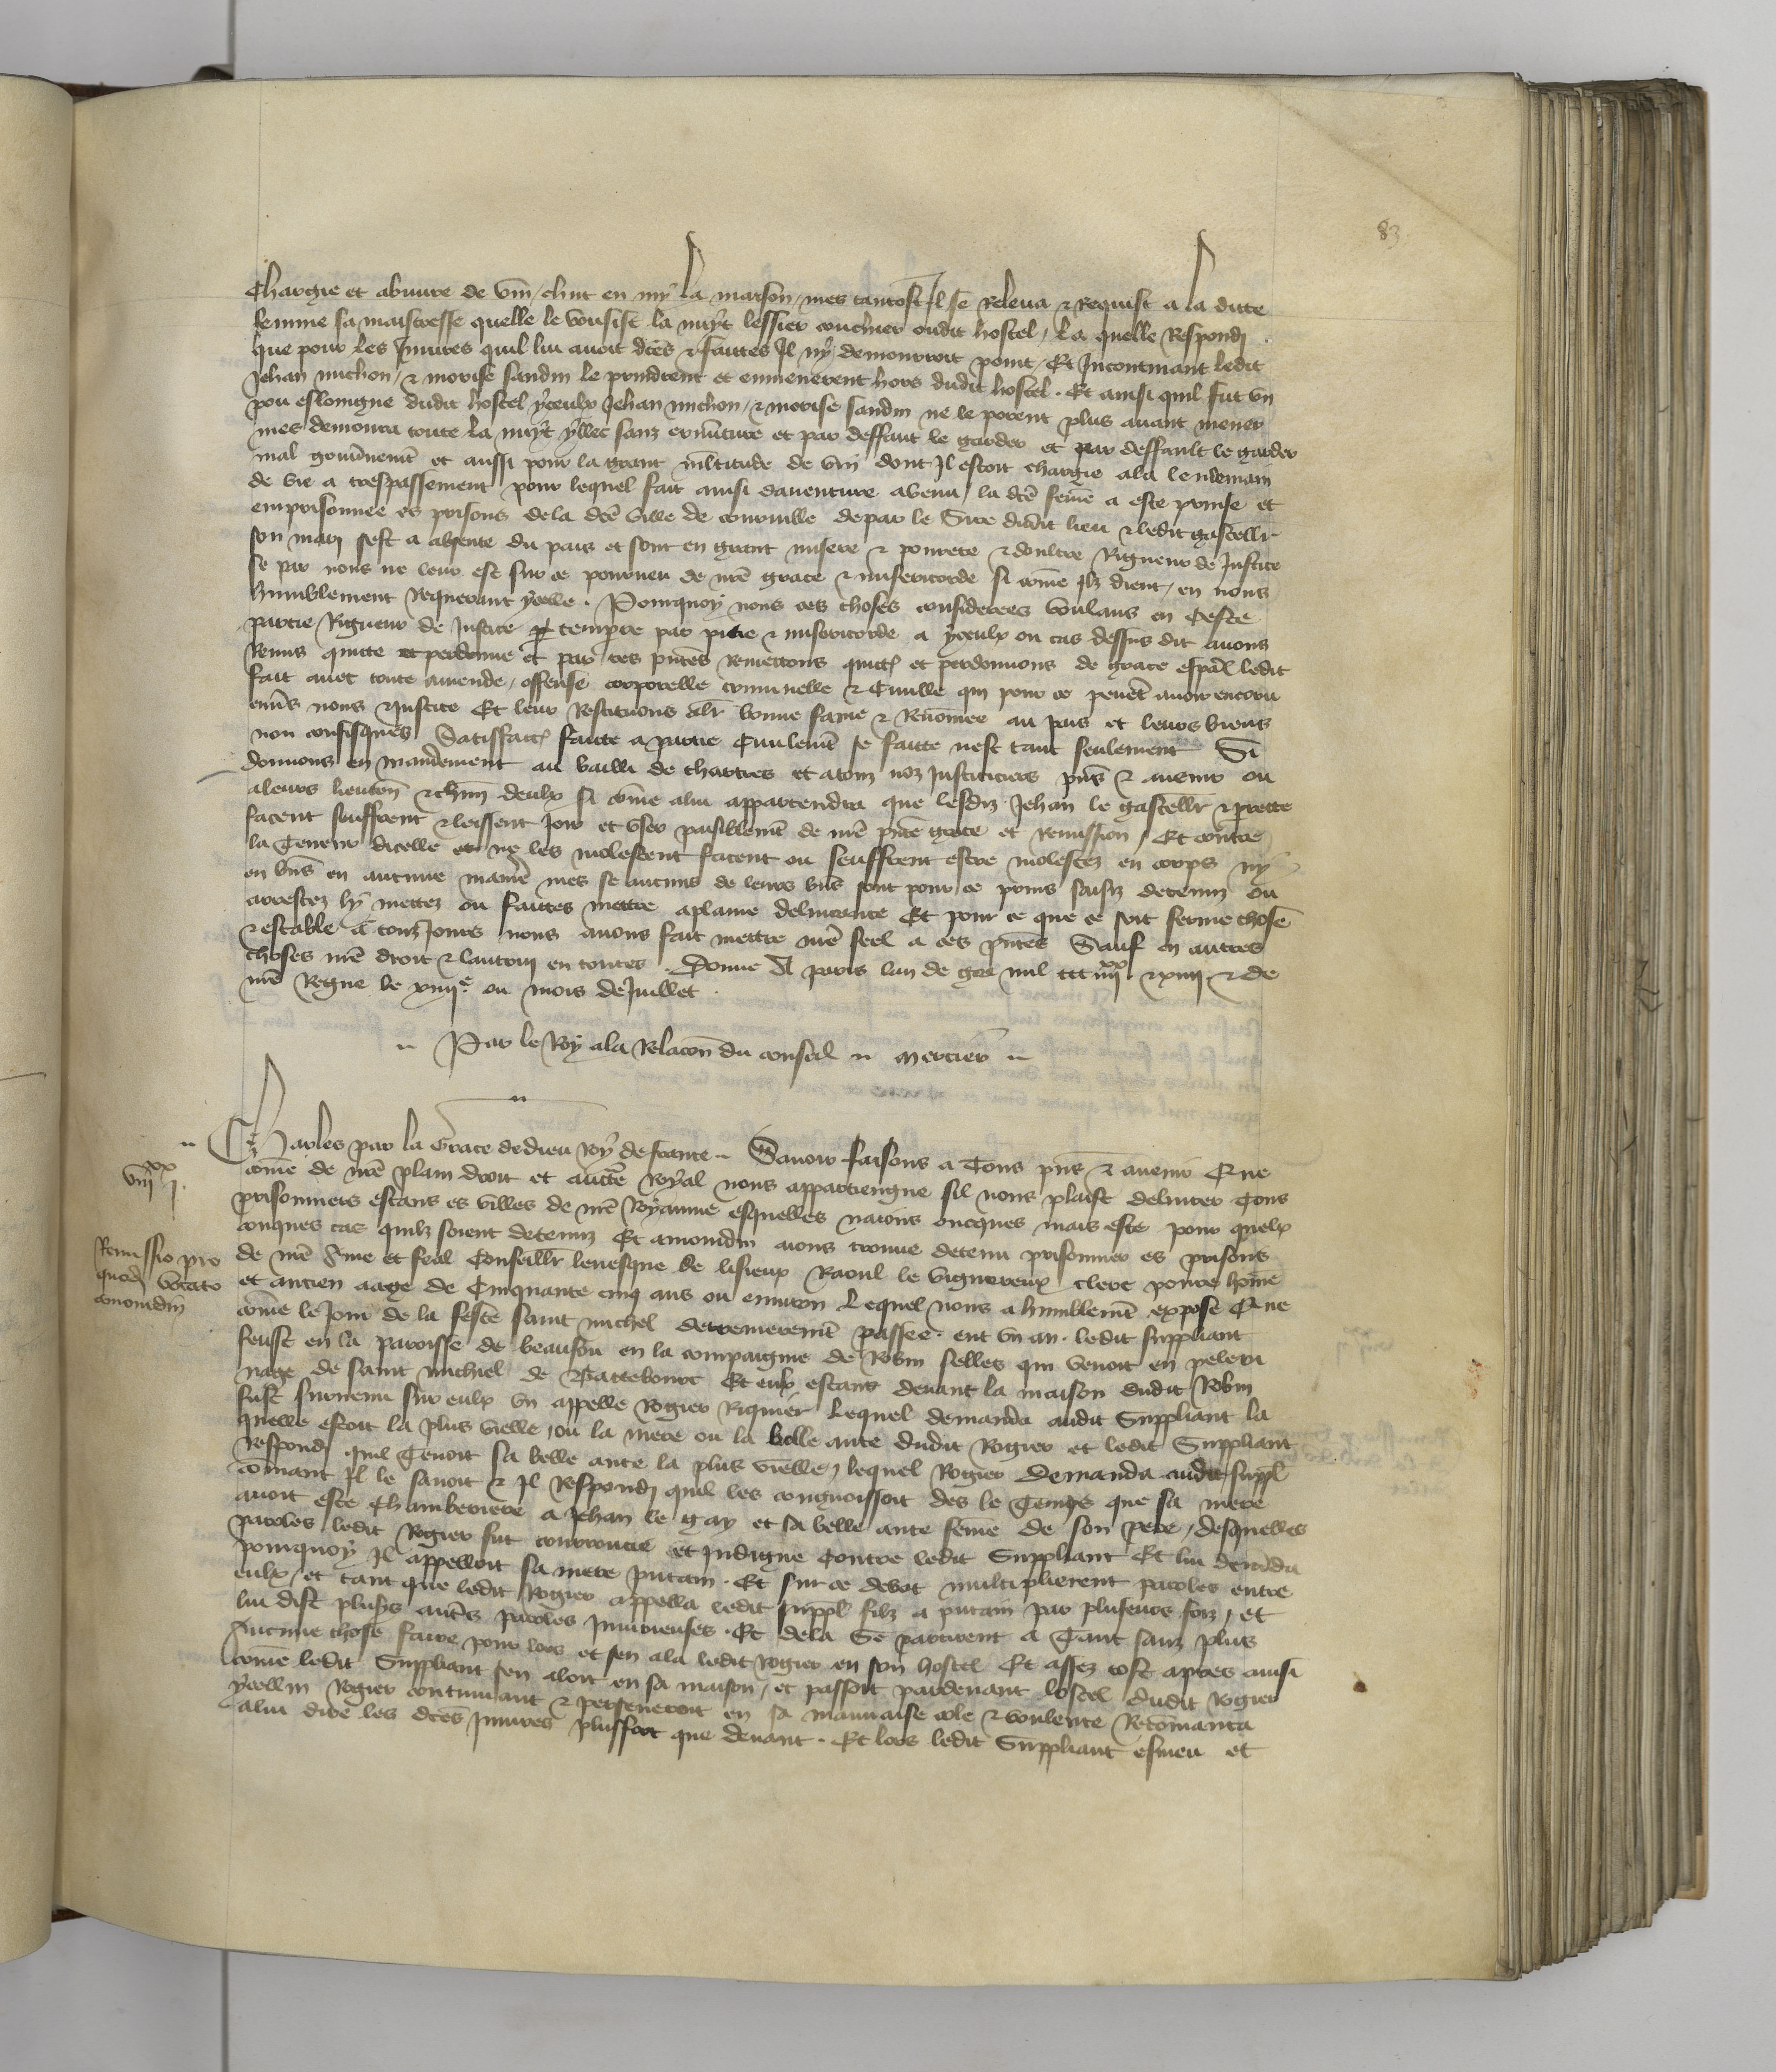 83
Chargie et abuvre de vin / chut en my la maison / mes tantost Il se Releva & Requist a la dicte
femme sa maistresse quelle le vousist la nuyt lessier couchier oudit hostel / la quelle Respondi
que pour les Iniures quil lui avoit dces & faictes Il ny demourroit point / Et Incontinant ledit
Jehan michon / & morise sandin le prindrent et enmenerent hors dudit hostel . Et ainsi quil fut un
pou esloingne dudit hostel yceulx Jehan michon / & morise sandin ne le porent plus avant mener
mes demoura toute la nuyt yllec sanz couverture et par deffaut le garder et par deffault le garder
mal gouvernemt et aussi pour la grant multitude de vin dont Il estoit chargie ala lendemain
de vie a trespassement pour lequel fait ainsi daventure avenu / la dce feme a este prinse et
emprisonnee es prisons dela dce ville de courville depar le Sire dudit lieu & ledit gastellr
son mary sest a absente du pais et sont en grant misere & povrete & doubtee Rigueur de Justice
se par nous ne leur est sur ce pourveu de nre grace & misericorde si come Ilz dient / en nous
humblement requerant ycelle . Pourquoy nous ces choses considerees voulans en Ceste
partie Rigueur de Justice tempree par pitie & misericorde a yceulx ou cas dessus dit avons
Remis quicte et perdonne et par ces pntes Remettons quictons et perdonnons de grace espal ledit
fait avec toute amende / offense corporelle criminelle & Civille quil pour ce pevent avoir encoru
envs nous & Justice Et leur Restituons a leur bonne fame & Renomee au pais et leurs biens
non confisques Satisfaccon faicte a partie Civilemt se faicte nest tant seulement Si
donnons en mandement au bailli de chartres et atouz noz Justiciers pns & avenir ou
aleurs lieuten & chun deulx si come alui appartendra que lesdiz Jehan le gastellr & prette
facent seuffrent & lessent Joir et user paisiblemt de nre pnte grace et Remission / Et contre
la Teneur dicelle ne les molestent facent ou seuffrent estre molestez en corps ny
en bns en aucune maniere mes se aucuns de leurs bns sont pour ce prins saisiz detenuz ou
arrestez ly mettez ou faictes mettre aplaine delivrance Et pour ce que ce soit ferme chose
& estable a touzJours nous avons fait mettre nre seel a ces pntes Sauf en autres
choses nre droit & lautruy en toutes . Donne A paris lan de grace mil ccc iiii xx & xiiii & de
nre Regne le xiiiie ou mois de Juillet .
Par le Roy ala Relacon du conseil mercier
Charles par la Grace dedieu Roy defrance Savoir faisons a Tous pns & avenir Que
viii xx i.
come de nre plain droit et aucte Royal nous appartiengne sil nous plaist delivrer Tous
prisonniers estans es villes de nre Royaume esquelles naions oncques mais este pour quelx
conques cas quilz soient detenuz Et amoindin aions trouve detenu prisonnier es prisons
Remissio pro
quod vocato
conoindin
de nre Ame et feal Conseillr levesque de lisieux Raoul le vignereux clerc povre home
et ancien aage de Cinquante cinq ans ou environ Lequel nous a humblemt expose Que
come le Jour de la feste saint michel derrenierement passee . eut un an . ledit suppliant
feust en la paroisse de beausou en la compaignie de Robin selles qui venoit en peleri
nage de saint michiel de Battebourc Et eulx estans devant la maison dudit Robin
fust survenu sur eulx un appelle Rogier Riquier Lequel demanda audit Suppliant la
quelle estoit la plus vielle / ou la mere ou la belle ante dudit Rogier et ledit Suppliant
Respondi quil Tenoit sa belle ante la plus vielle / lequel Rogier Demanda audit suppl
comant Il le savoit & Il Respondi quil les congnoissoit des le Temps que sa mere
avoit este Chamberiere a Jehan le gay et sa belle ante feme de son pere / desquelles
paroles ledit Rogier fut courroucie et Indigne Contre ledit Suppliant Et lui demanda
pourquoy Il appelloit sa mere putain . Et sur ce debat multiplierent paroles entre
eulx / et tant que ledit Rogier appella ledit suppl filz a putain par pluseurs foiz / et
lui dist plusrs autres paroles Iniurieuses . Et dela Se partirent a Tant sanz plus
Aucune chose faire pour lors et sen ala ledit Rogier en son hostel Et assez tost apres ainsi
come ledit Suppliant sen aloit en sa maison / et passoit pardevant lostel dudit Rogier
ycellui Rogier continuant & perseverant en sa mauvaise cole & voulente Recomanca
alui dire les dces Iniures plusfort que devant . Et lors ledit Suppliant esmeu et